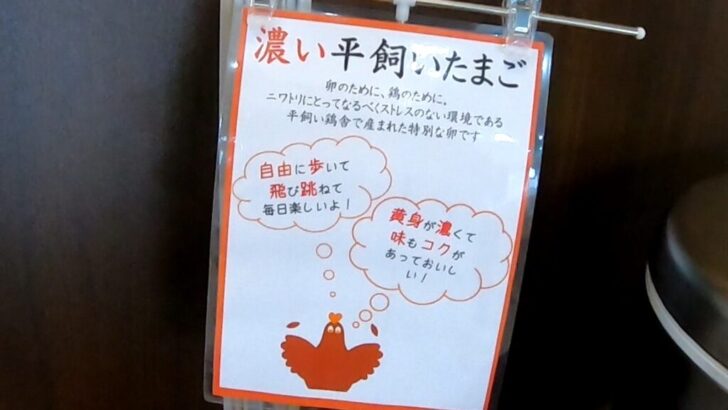 濃い平飼いたまご
卵のために、鶏のために。
ニワトリにとってなるべくストレスのない環境である
平飼い鶏舎で産まれた特別な卵です
自由に歩いて
飛び跳ねて
毎日楽しいよ！
黄身が濃くて
味もコクが
あっておいし
い！